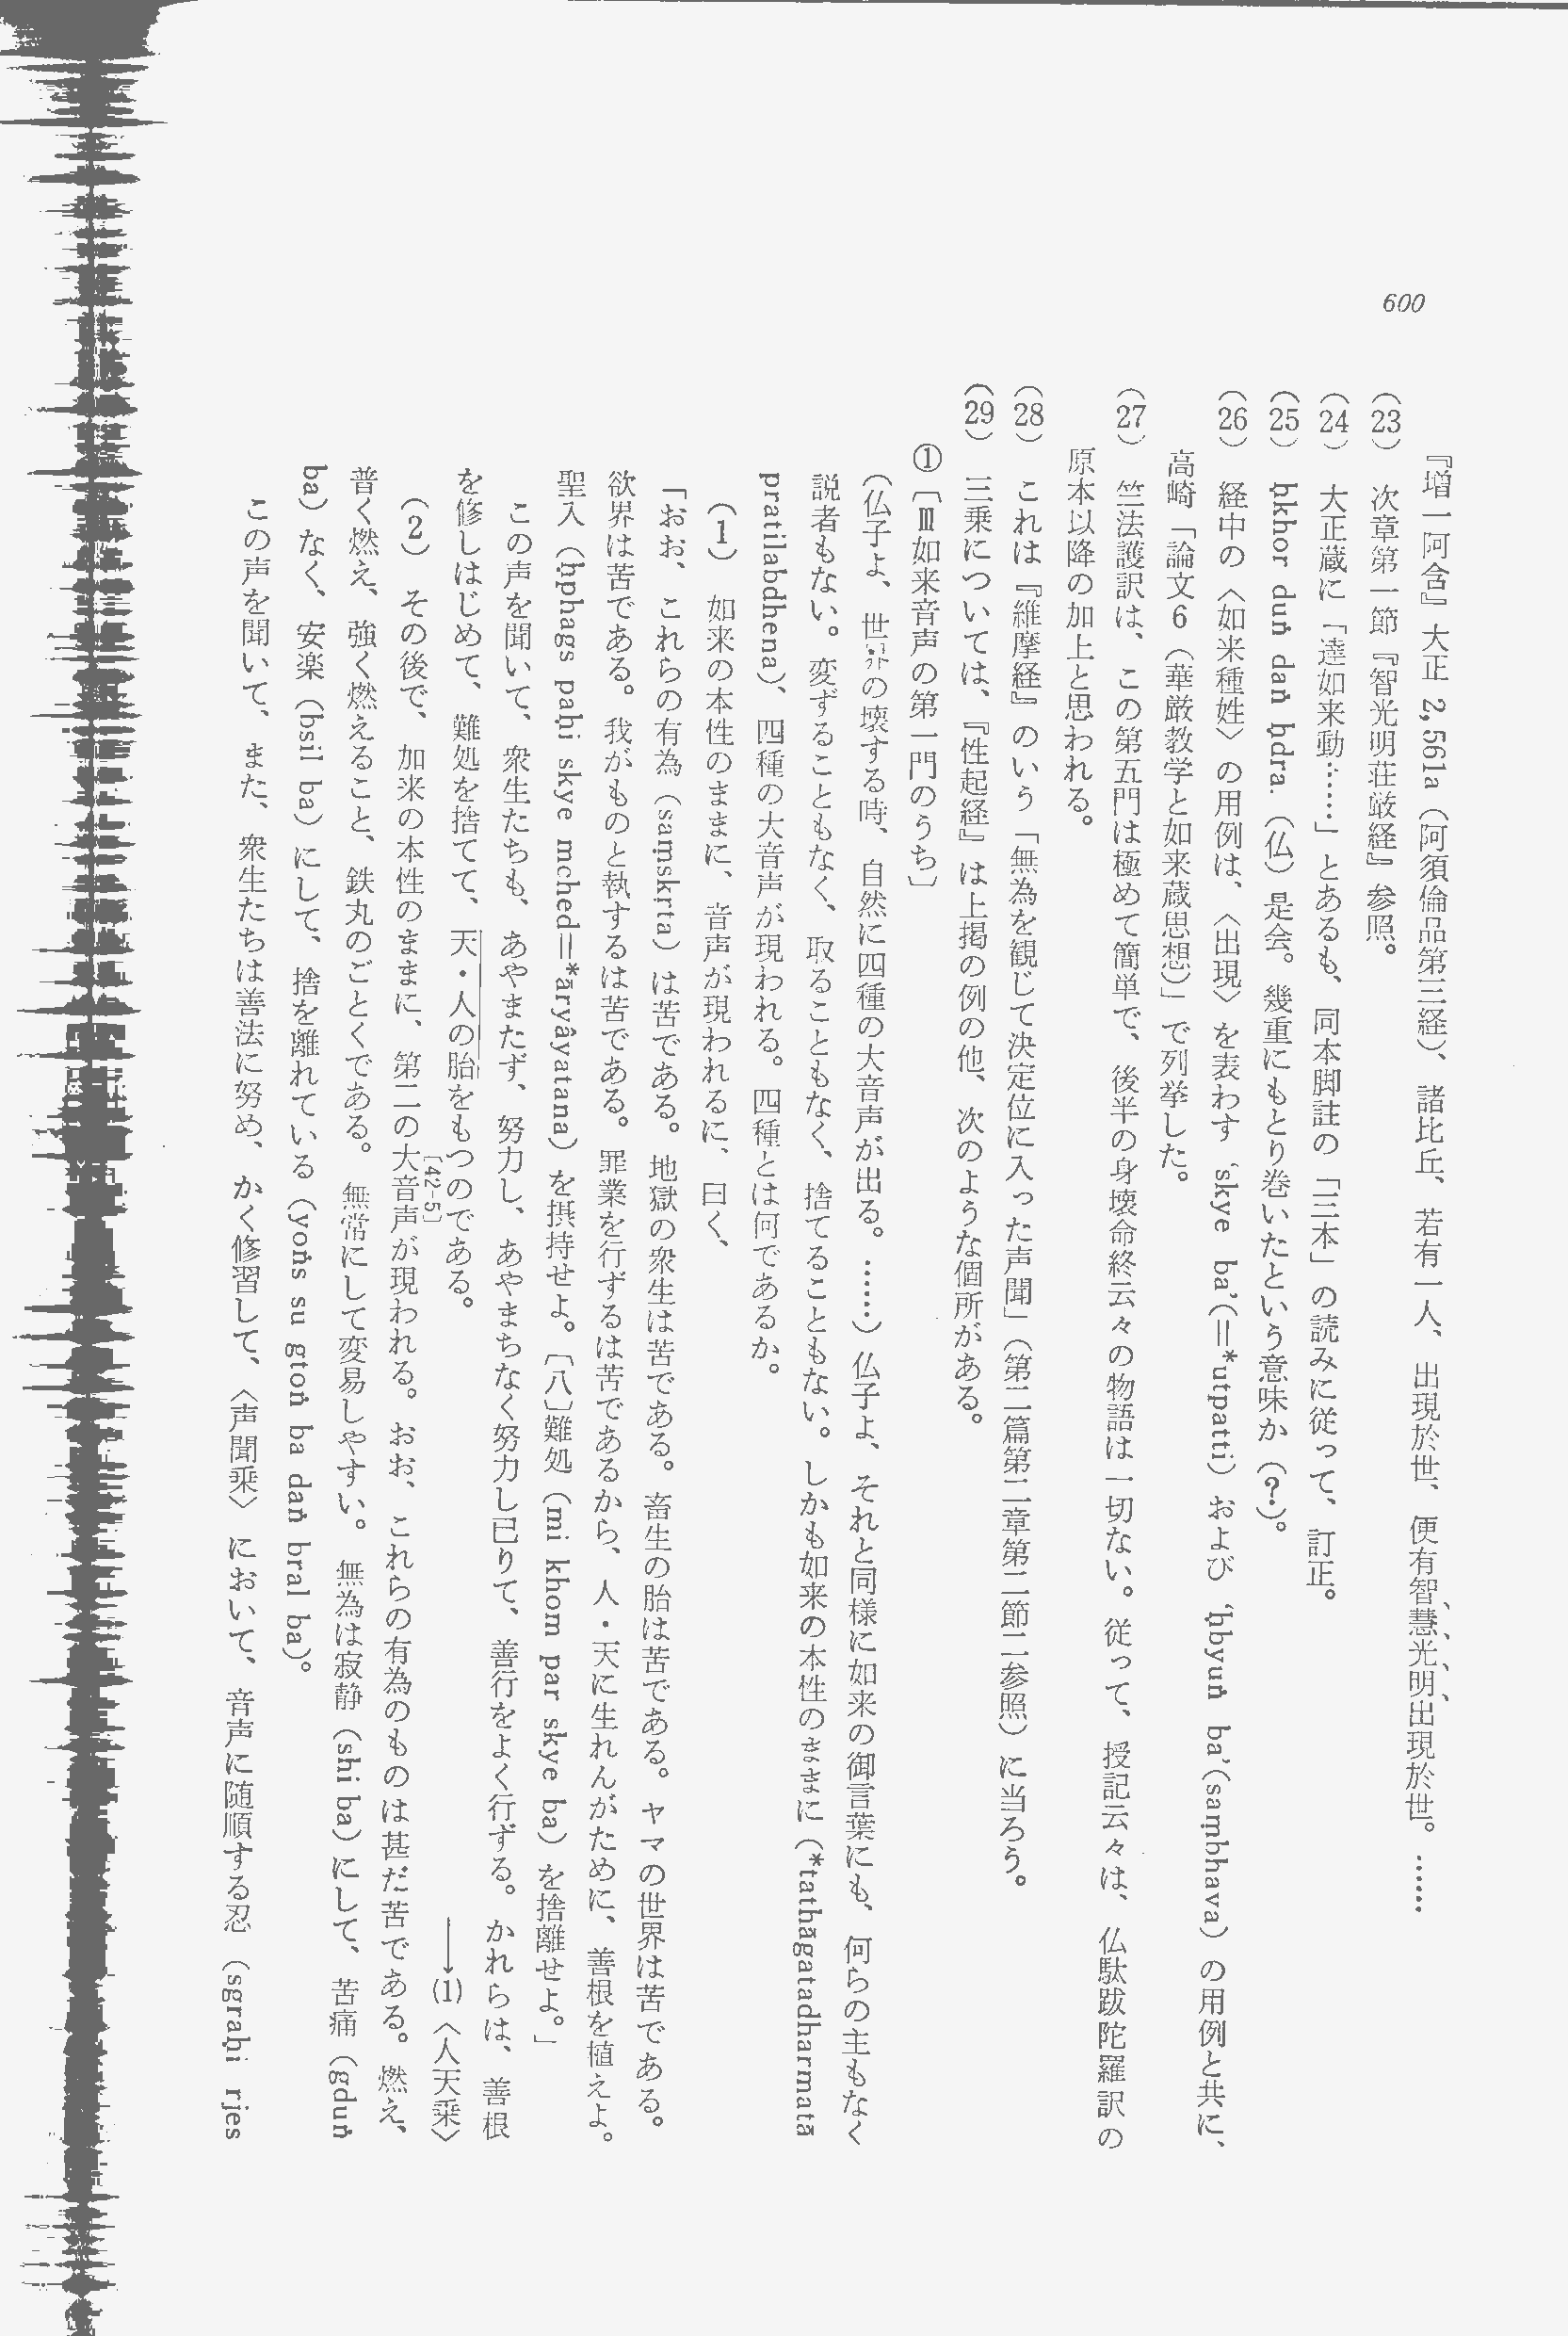 600
『増一阿含』大正 2,561a（阿須倫品第三経）、諸比丘、若有一人、出現於世、便有智慧光明出現於世。……
(23) 次章第一節『智光明荘厳経』参照。
(24) 大正蔵に「達如来動……」とあるも、同本脚註の「三本」の読みに従って、訂正。
(25) ḥkhor duṅ daṅ ḥdra.（仏）是会。幾重にもとり巻いたという意味か（？）。
(26) 経中の〈如来種姓〉の用例は、〈出現〉を表わす‘skye ba’（＝*utpatti）および‘ḥbyuṅ ba’（saṃbhava）の用例と共に、
高崎「論文６（華厳教学と如来蔵思想）」で列挙した。
(27) 竺法護訳は、この第五門は極めて簡単で、後半の身壊命終云々の物語は一切ない。従って、授記云々は、仏駄跋陀羅訳の
原本以降の加上と思われる。
(28) これは『維摩経』のいう「無為を観じて決定位に入った声聞」（第二篇第二章第二節二参照）に当ろう。
(29) 三乗については、『性起経』は上掲の例の他、次のような個所がある。
①〔Ⅲ如来音声の第一門のうち〕
（仏子よ、世界の壊する時、自然に四種の大音声が出る。……）仏子よ、それと同様に如来の御言葉にも、何らの主もなく
説者もない。変ずることもなく、取ることもなく、捨てることもない。しかも如来の本性のままに（*tathāgatadharmatā
pratilabdhena）、四種の大音声が現われる。四種とは何であるか。
（1）如来の本性のままに、音声が現われるに、曰く、
「おお、これらの有為（saṃskṛta）は苦である。地獄の衆生は苦である。畜生の胎は苦である。ヤマの世界は苦である。
欲界は苦である。我がものと執するは苦である。罪業を行ずるは苦であるから、人・天に生れんがために、善根を植えよ。
聖入（ḥphags paḥi skye mched＝*āryâyatana）を摂持せよ。〔八〕難処（mi khom par skye ba）を捨離せよ。」
この声を聞いて、衆生たちも、あやまたず、努力し、あやまちなく努力し已りて、善行をよく行ずる。かれらは、善根
を修しはじめて、難処を捨てて、天・人の胎をもつのである。 ──→(1)〈人天乗〉
（2）その後で、加来の本性のままに、第二の大音声が現われる。おお、これらの有為のものは甚だ苦である。燃え、
〔42-5〕
普く燃え、強く燃えること、鉄丸のごとくである。無常にして変易しやすい。無為は寂静（shi ba）にして、苦痛（gduṅ
ba）なく、安楽（bsil ba）にして、捨を離れている（yoṅs su gtoṅ ba daṅ bral ba）。
この声を聞いて、また、衆生たちは善法に努め、かく修習して、〈声聞乗〉において、音声に随順する忍（sgraḥi rjes